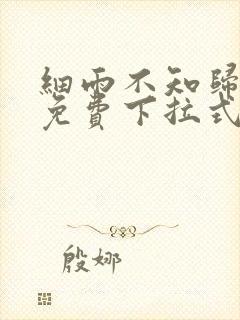 細雨不知歸
免費下拉式
殷娜